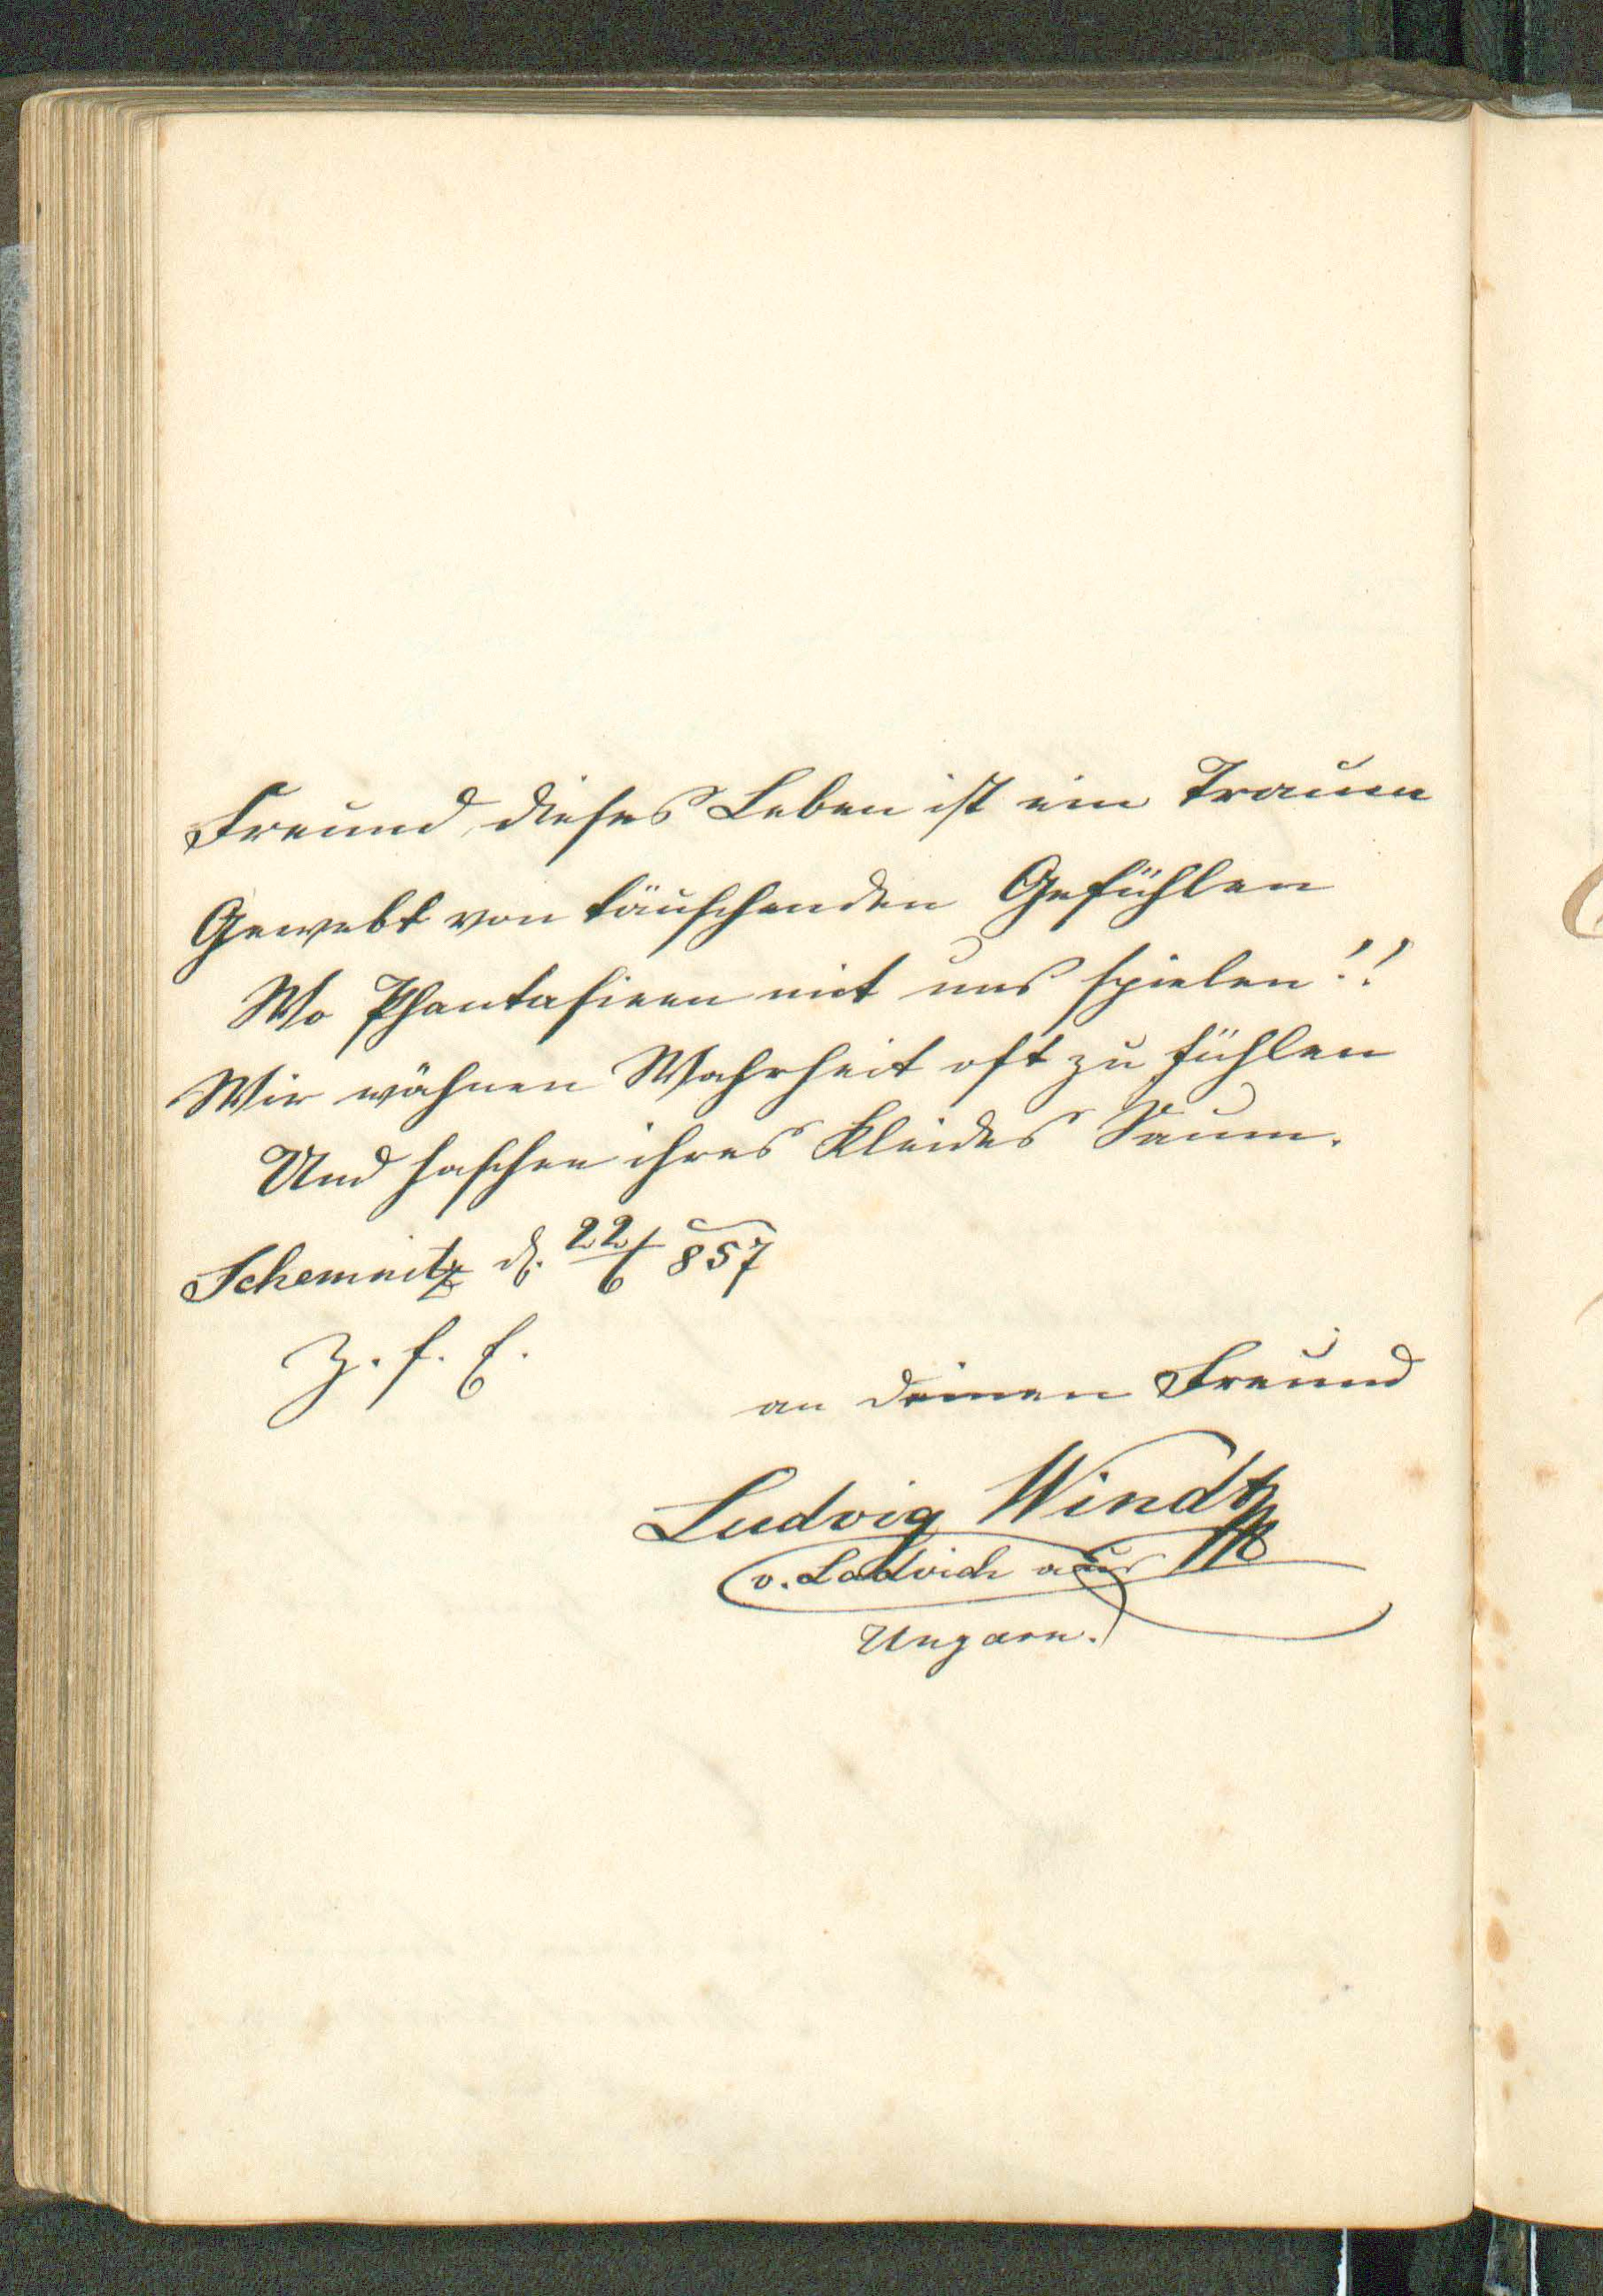 Freund, dieses Leben ist ein Traum
Gewebt von täuschenden Gefühlen
Wo Phantasieen mit uns spielen!!
Wir wähnen Wahrheit oft zu fühlen
Und haschen ihres Kleides Saum.
Schemnitz d. 22/6 857
Z. f. E.
an deinen Freund
Ludvig Windt
v. Ladvich aus
Ungarn.